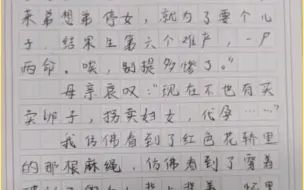 来弟想弟停女，就为了要个儿
子，结果生第六个难产，一尸
两命。唉，别提多惨了。”
母亲哀叹：“现在不也有买
卖卵子，拐卖妇女，代孕……”
我仿佛看到了红色花轿里
的那根麻绳，仿佛看到了穿着